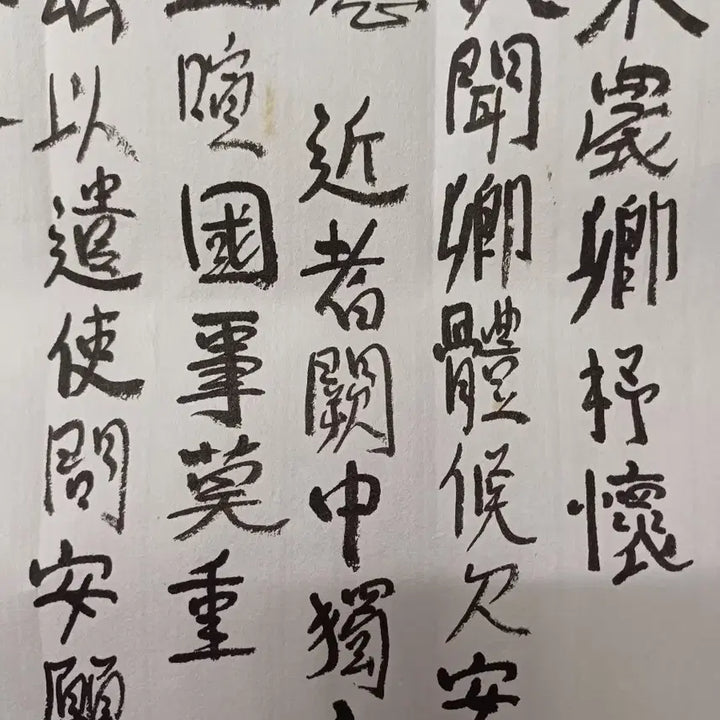 卿杼懷
聞卿體候欠安
近者闕中獨
暄國事莫重
以遣使問安願